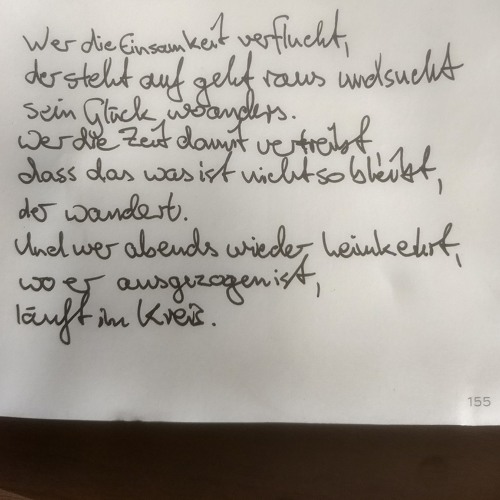 Wer die Einsamkeit verflucht,
der steht auf geht raus und sucht
sein Glück woanders.
Wer die Zeit damit vertreibt
dass das was ist nicht so bleibt,
der wandert.
Und wer abends wieder heimkehrt,
wo er ausgezogen ist,
läuft im Kreis.
155